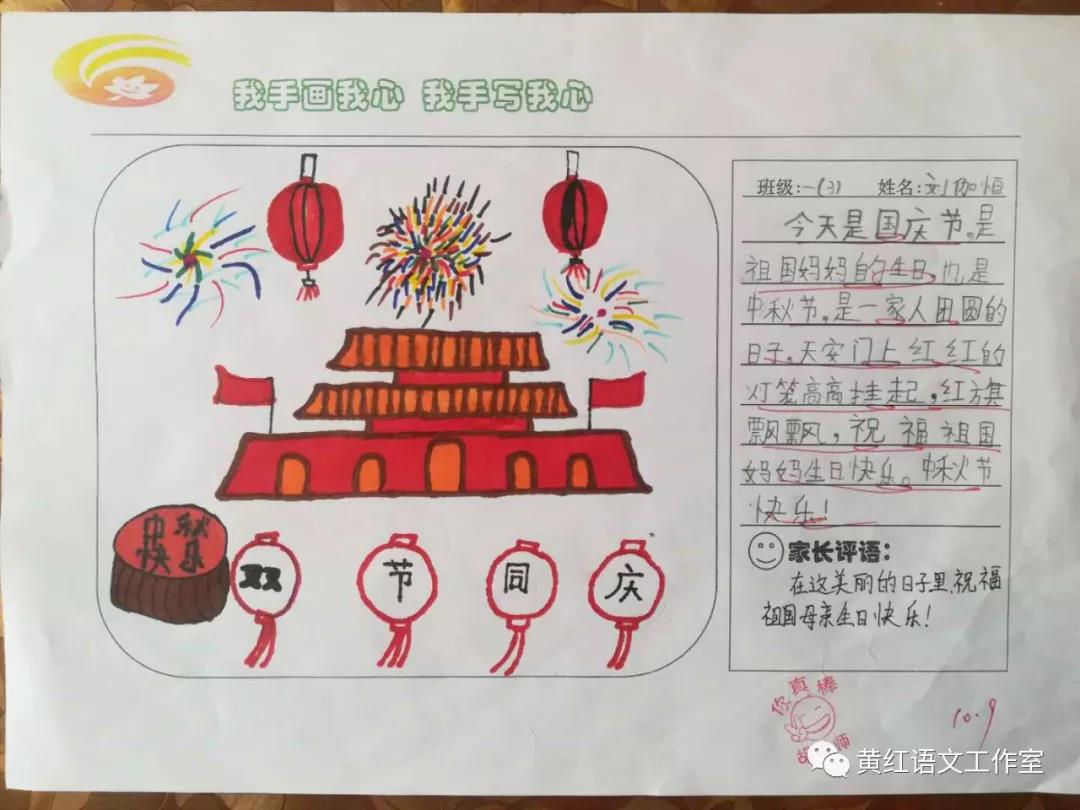 我手画我心 我手写我心
班级:一(3) 姓名:刘伽恒
今天是国庆节。是
祖国妈妈的生日,也是
中秋节。是一家人团圆的
日子。天安门上红红的
灯笼高高挂起,红旗
飘飘,祝福祖国
妈妈生日快乐。中秋节
快乐!
家长评语:
在这美丽的日子里,祝福
祖国母亲生日快乐!
中秋
快乐
双 节 同 庆
你真棒
胡 师
10.9
黄红语文工作室